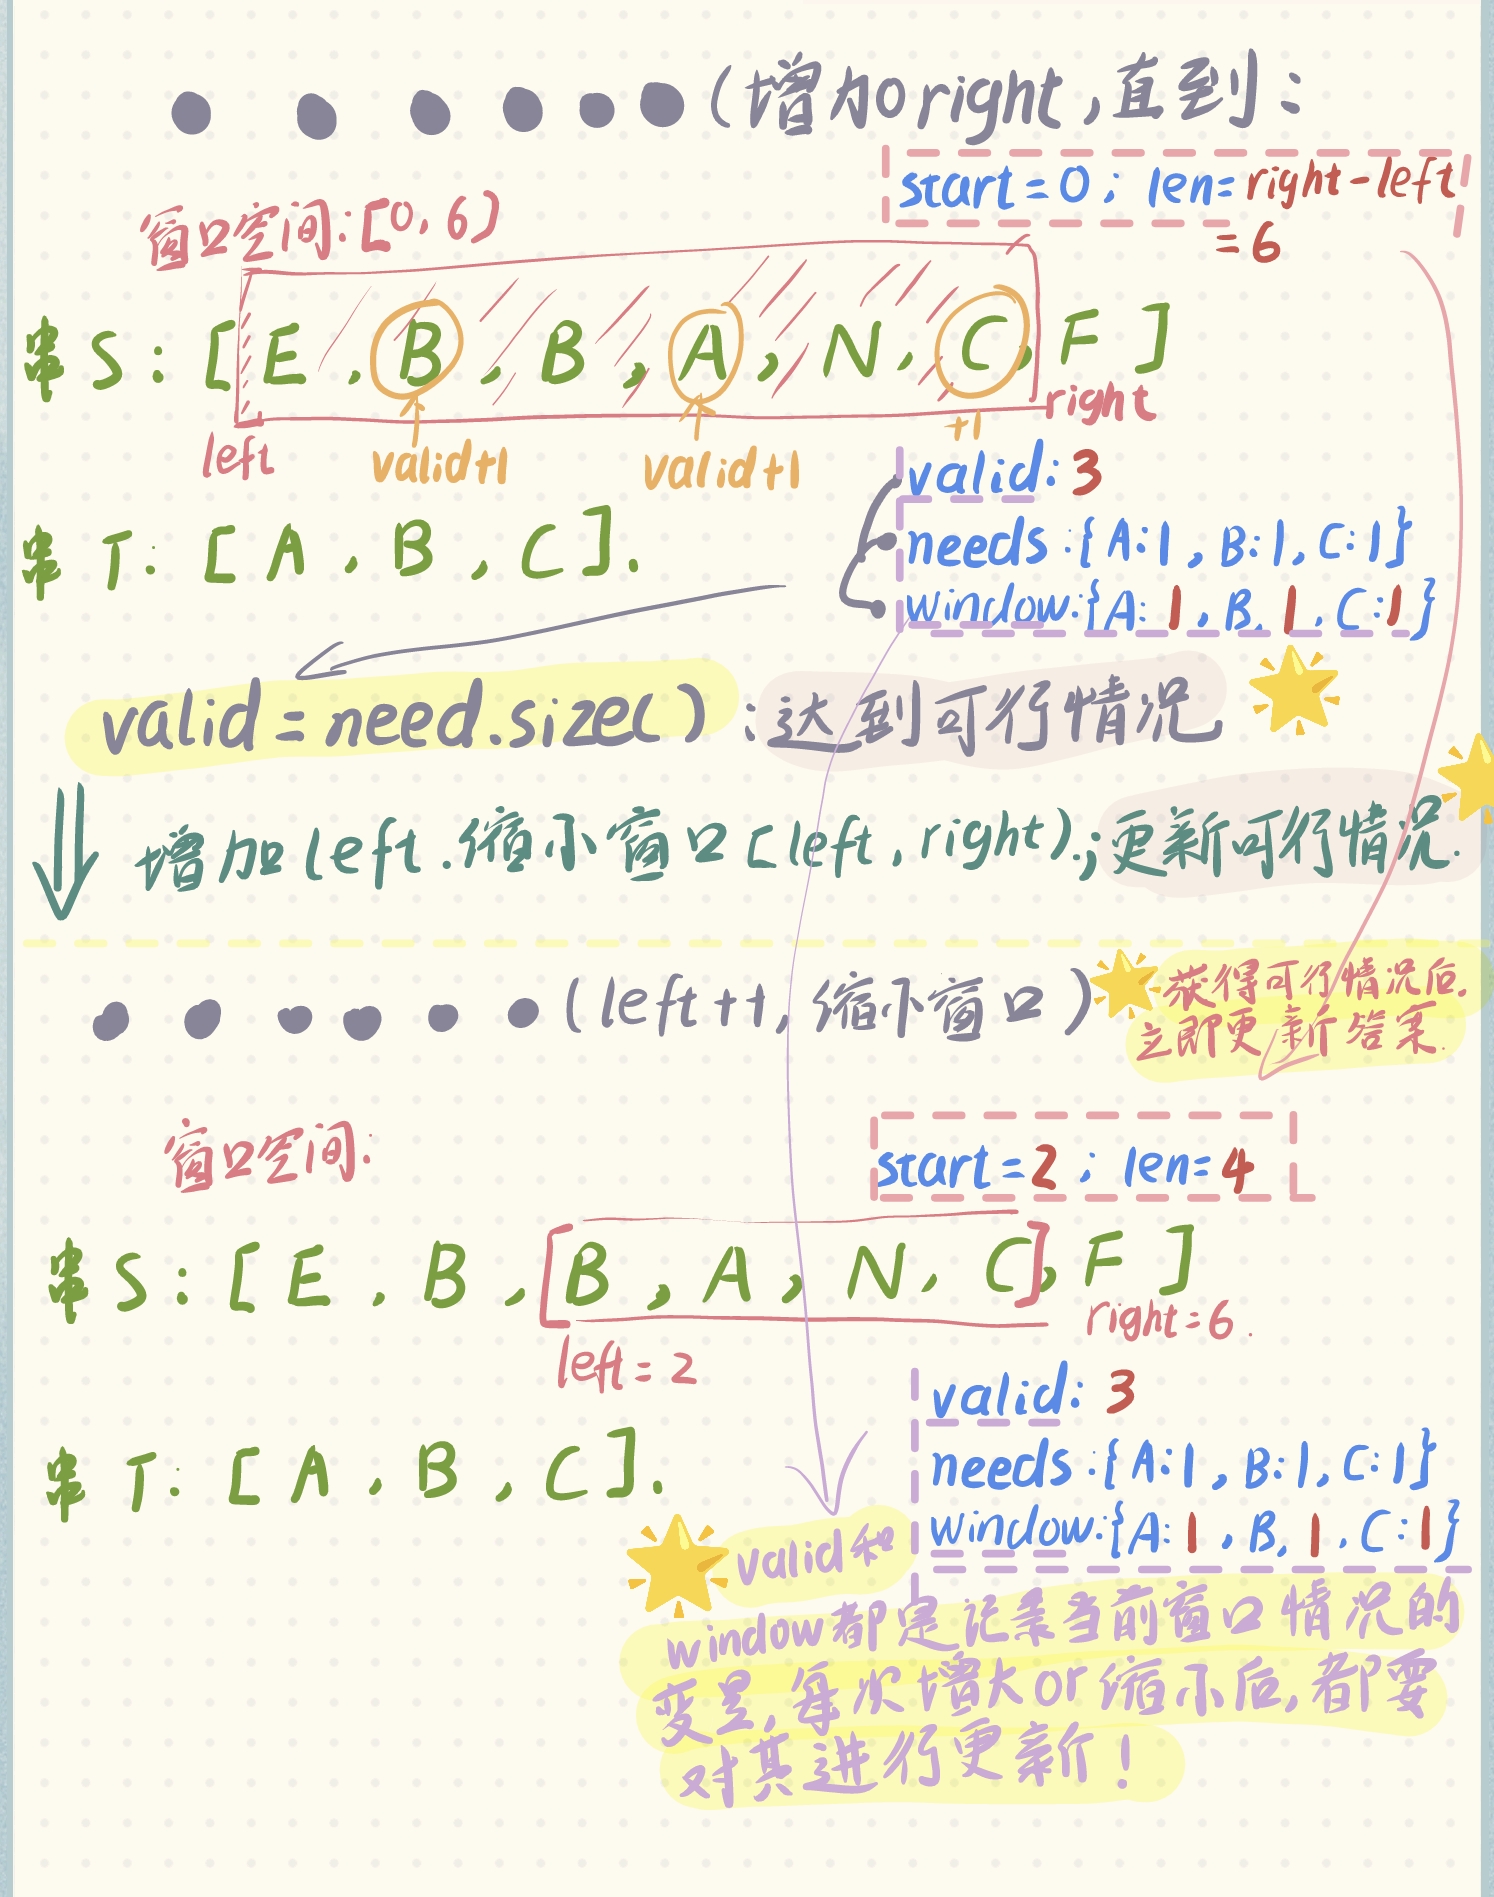 (增加right,直到:
start=0; len=right-left
=6
窗口空间:[0,6)
串S:[E,B,B,A,N,C,F]
left
right
valid+1
valid+1
+1
valid:3
串T:[A,B,C].
needs:{A:1,B:1,C:1}
window:{A:1,B,1,C:1}
valid=need.size():达到可行情况
增加left.缩小窗口[left,right).;更新可行情况.
(left++,缩小窗口)
获得可行情况后,
立即更新答案.
窗口空间:
start=2; len=4
串S:[E,B,[B,A,N,C],F]
left=2
right=6.
valid:3
串T:[A,B,C].
needs:{A:1,B:1,C:1}
window:{A:1,B,1,C:1}
valid和
window都是记录当前窗口情况的
变量,每次增大or缩小后,都要
对其进行更新!